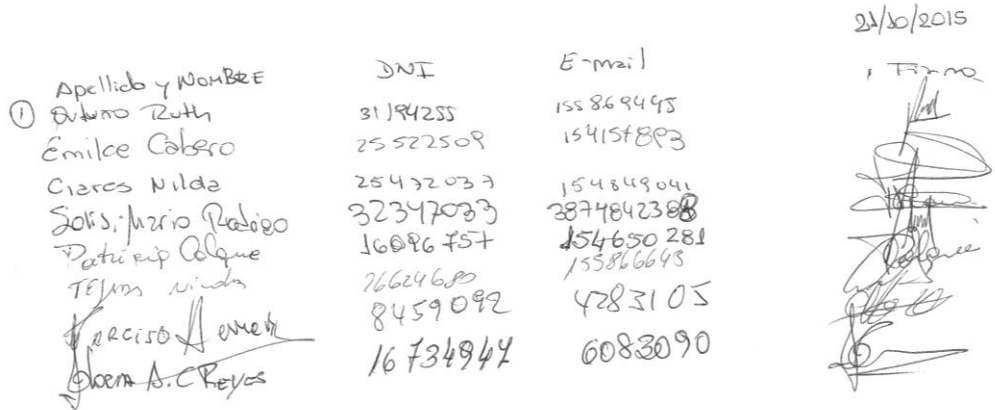 21/10/2015
Apellido y NOMBRE DNI E-mail Firma
① Ruth 31194255 155869445
Emilce Cabero 25522509 154157893
Clares Nilda 25472037 154849041
Solis, Mario Rodrigo 32347033 3874842388
Patricia Colque 16096757 154650281
TEJADA 26624680 155866645
NARCISO 8459092 4283105
A.C REYES 16734947 6083090